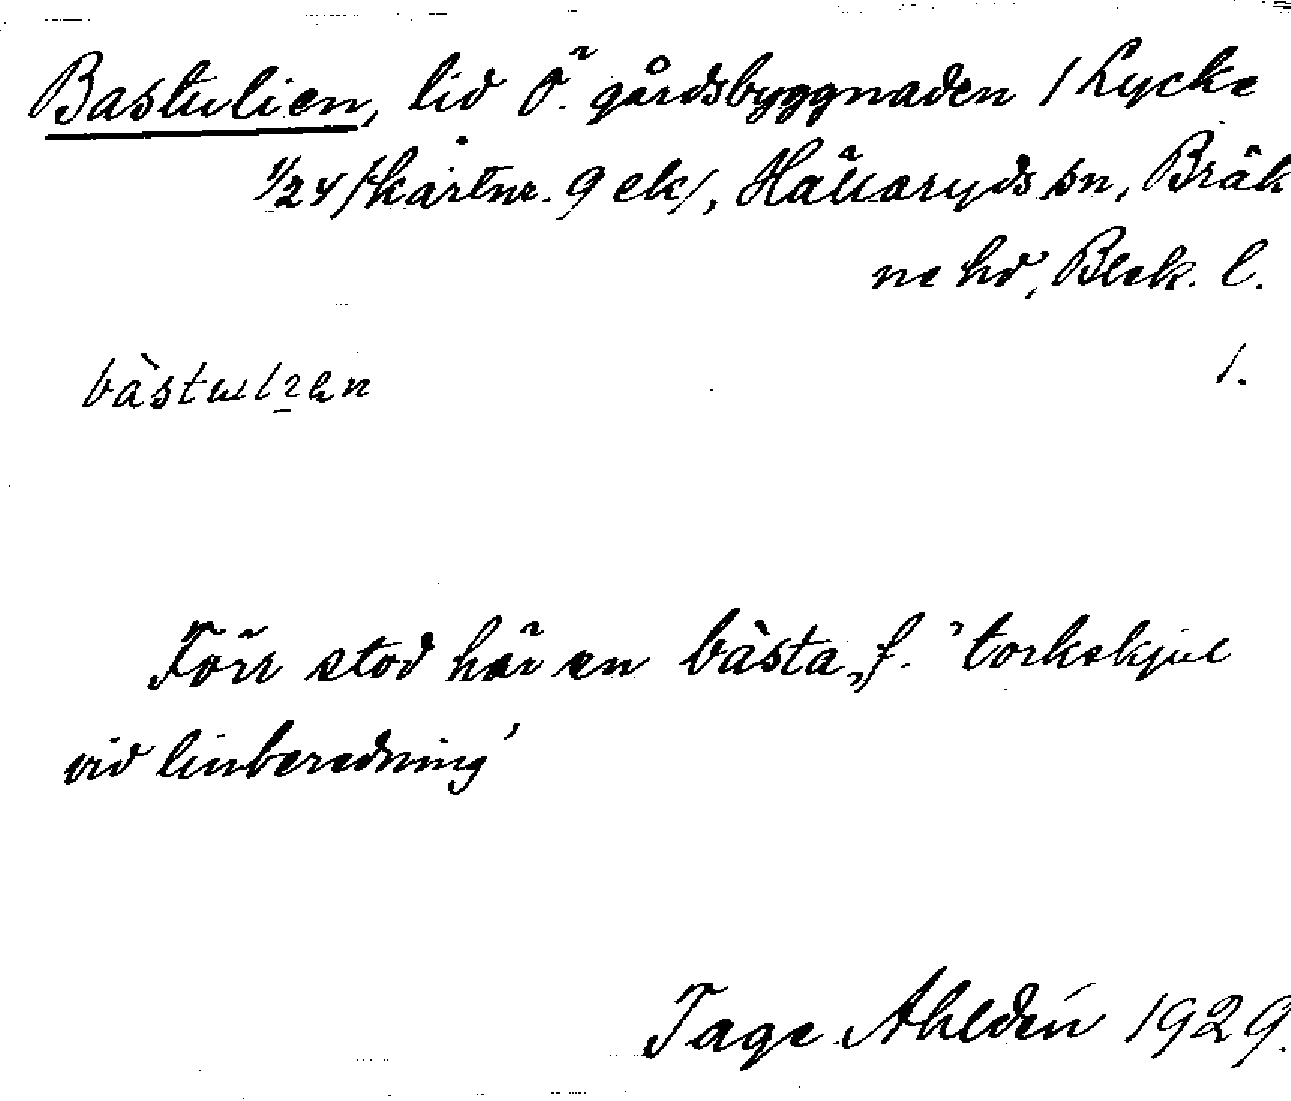 Bastulien, lid Ö. gårdsbyggnaden 1 Lycke
1/24 /kartnr. 9 ek/, Hällaryds sn, Bräk
ne hd, Blek. l.
1.
Förr stod här en bàsta, f. 'torkskjul
vid linberedning'
Tage Ahldén 1929.